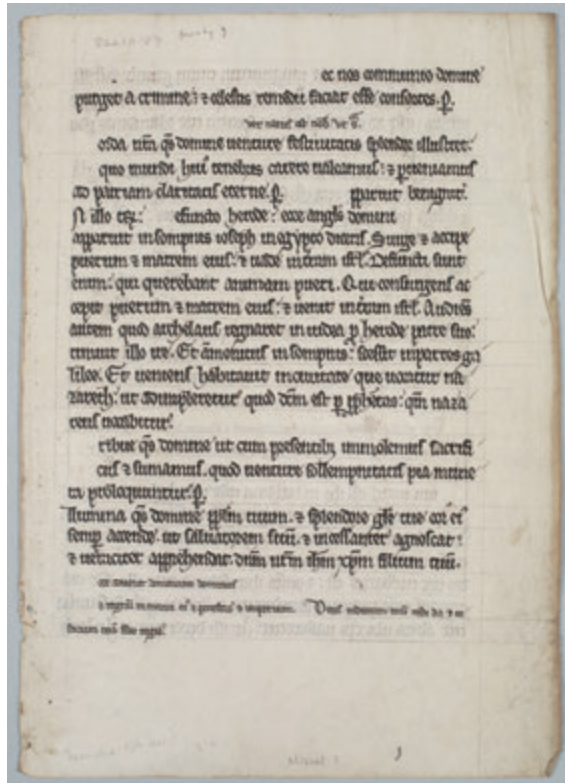 ec nos communio domine
purget a crimine: & celestis remedii faciat esse consortes. p.
Puer natus est nob
orda nrm qs domine venture festivitatis splendor illustret:
quo mundi hui tenebris carere valeamus: & pveniamus
ad patriam claritatis eterne. p. pparuit benignit.
In illo tpr: efuncto herode: ecce angls domini
apparuit insompnis ioseph in egypto dicens. Surge & accipe
puerum & matrem eius: & vade intram isrl. Defuncti sunt
enim: qui querebant animam pueri. Qui consurgens ac
cepit puerum & matrem eius: & venit intram isrl. Audiens
autem quod archelaus regnaret in iudea p herode patre suo:
timuit illo ire. Et amonitus insompnis: secessit inpartes ga
lilee. Et veniens habitavit incivitate que vocatur na
zareth: ut adimpleretur quod dcm est p pphetas: qm naza
reus vocabitur.
ribue qs domine ut cum presentib; immolemus sacrifi
ciis & sumamus. quod venture sollempnitatis pia munie
ra proloquuntur. p.
Illumina qs domine pplm tuum. & splendore gle tue cor ei
semp accende. ut salvatorem suu. & incessanter agnoscat:
& veraciter apprehendat. dnm nrm ihm xpm filium tuu.
ce dominator dominus
& regnu in manu ei & potestas & imperium. Deus iudicium tuu regi da & iu
sticiam tua filio regis.